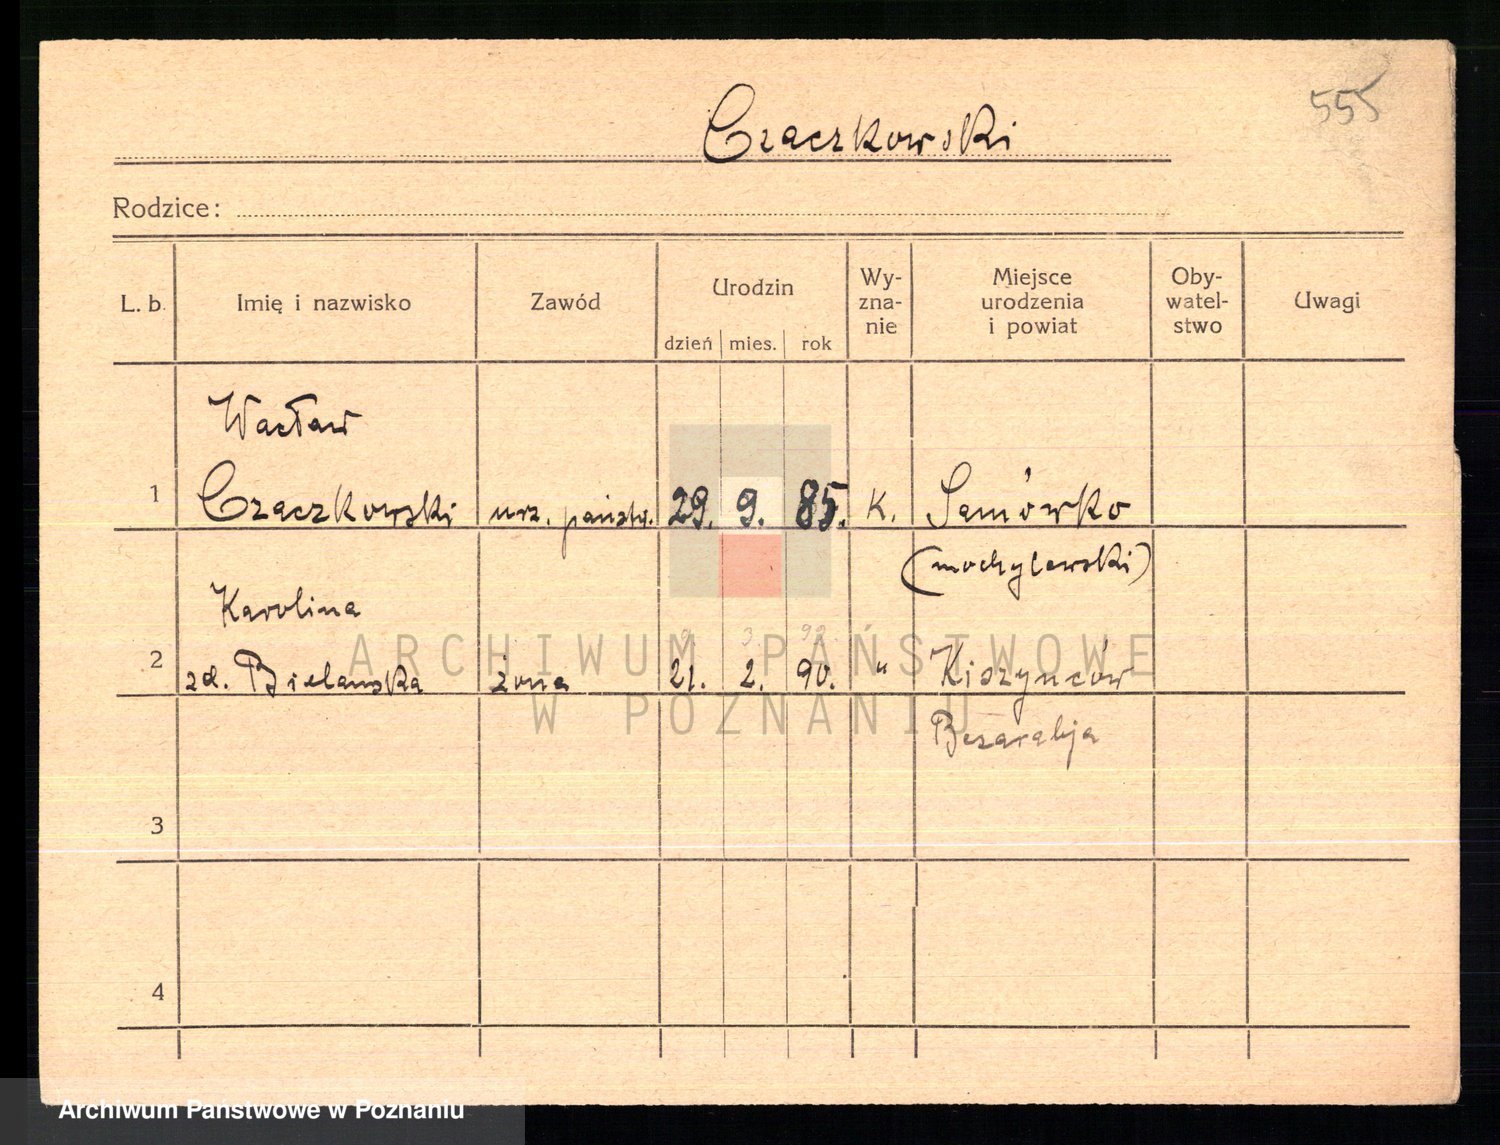 555
Czaczkowski
Rodzice:
L. b. Imię i nazwisko Zawód Urodzin dzień mies. rok Wy-zna-nie Miejsce urodzenia i powiat Oby-watel-stwo Uwagi
Wacław
1 Czaczkowski urz. państw. 29. 9. 85. K. Semówko
(mochylewski)
Karolina
9 3 92
2 zd. Bielawska żona 21. 2. 90. " Kiszynców
Bezarabja
3
4
ARCHIWUM PAŃSTWOWE
W POZNANIU
Archiwum Państwowe w Poznaniu